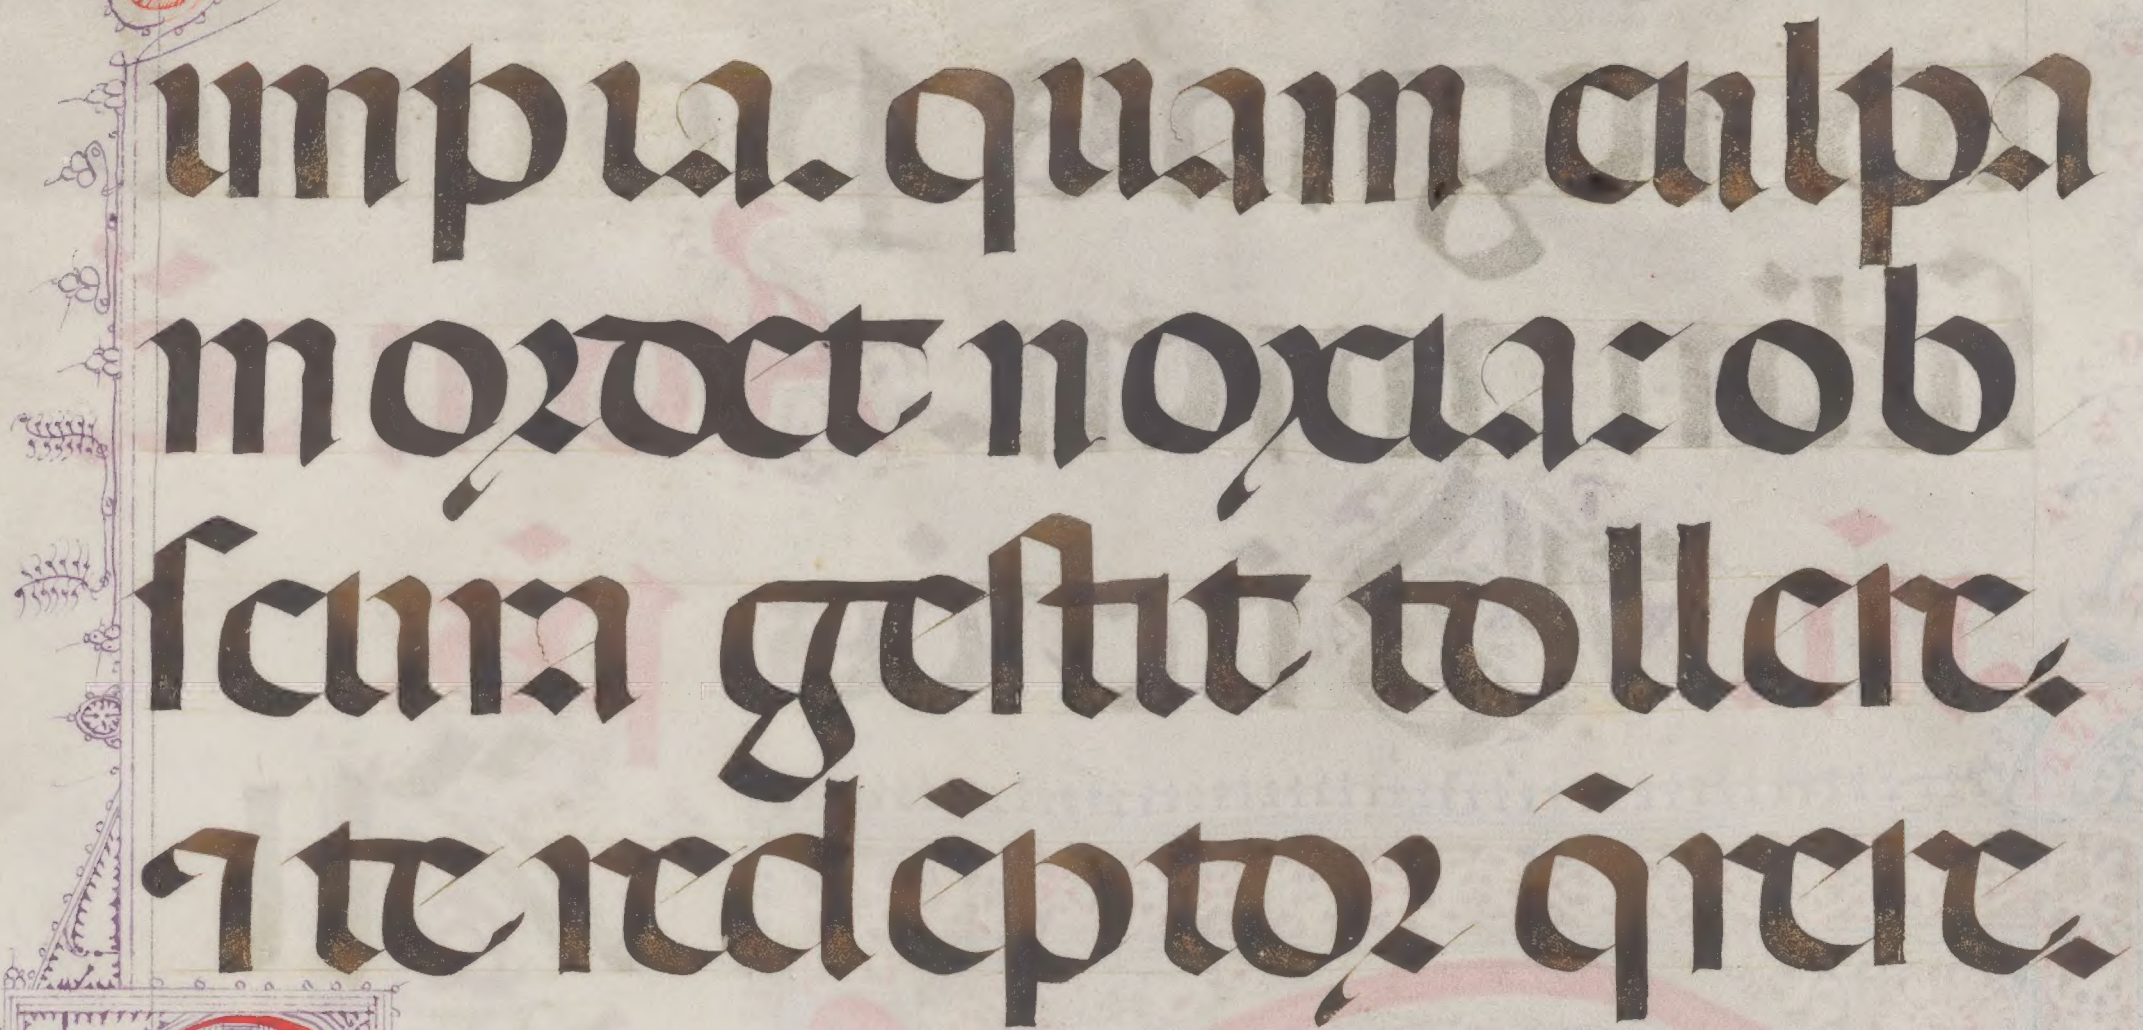 impia. quam culpa
moꝛdet noxia: ob
ſcura geſtit tollere.
⁊ te redēptoꝛ q̄rere.